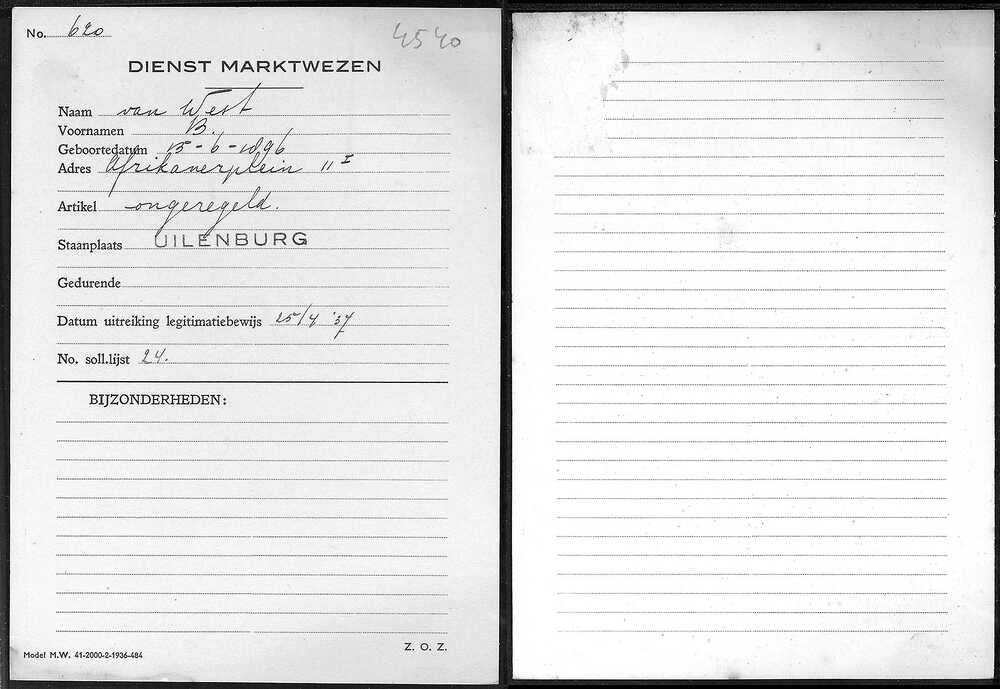 No. 620
4540
DIENST MARKTWEZEN
Naam van West
Voornamen B.
Geboortedatum 15-6-1896
Adres Afrikanerplein 11 I
Artikel ongeregeld.
Staanplaats UILENBURG
Gedurende
Datum uitreiking legitimatiebewijs 25/4 '37
No. soll.lijst 24.
BIJZONDERHEDEN:
Z. O. Z.
Model M.W. 41-2000-2-1936-484